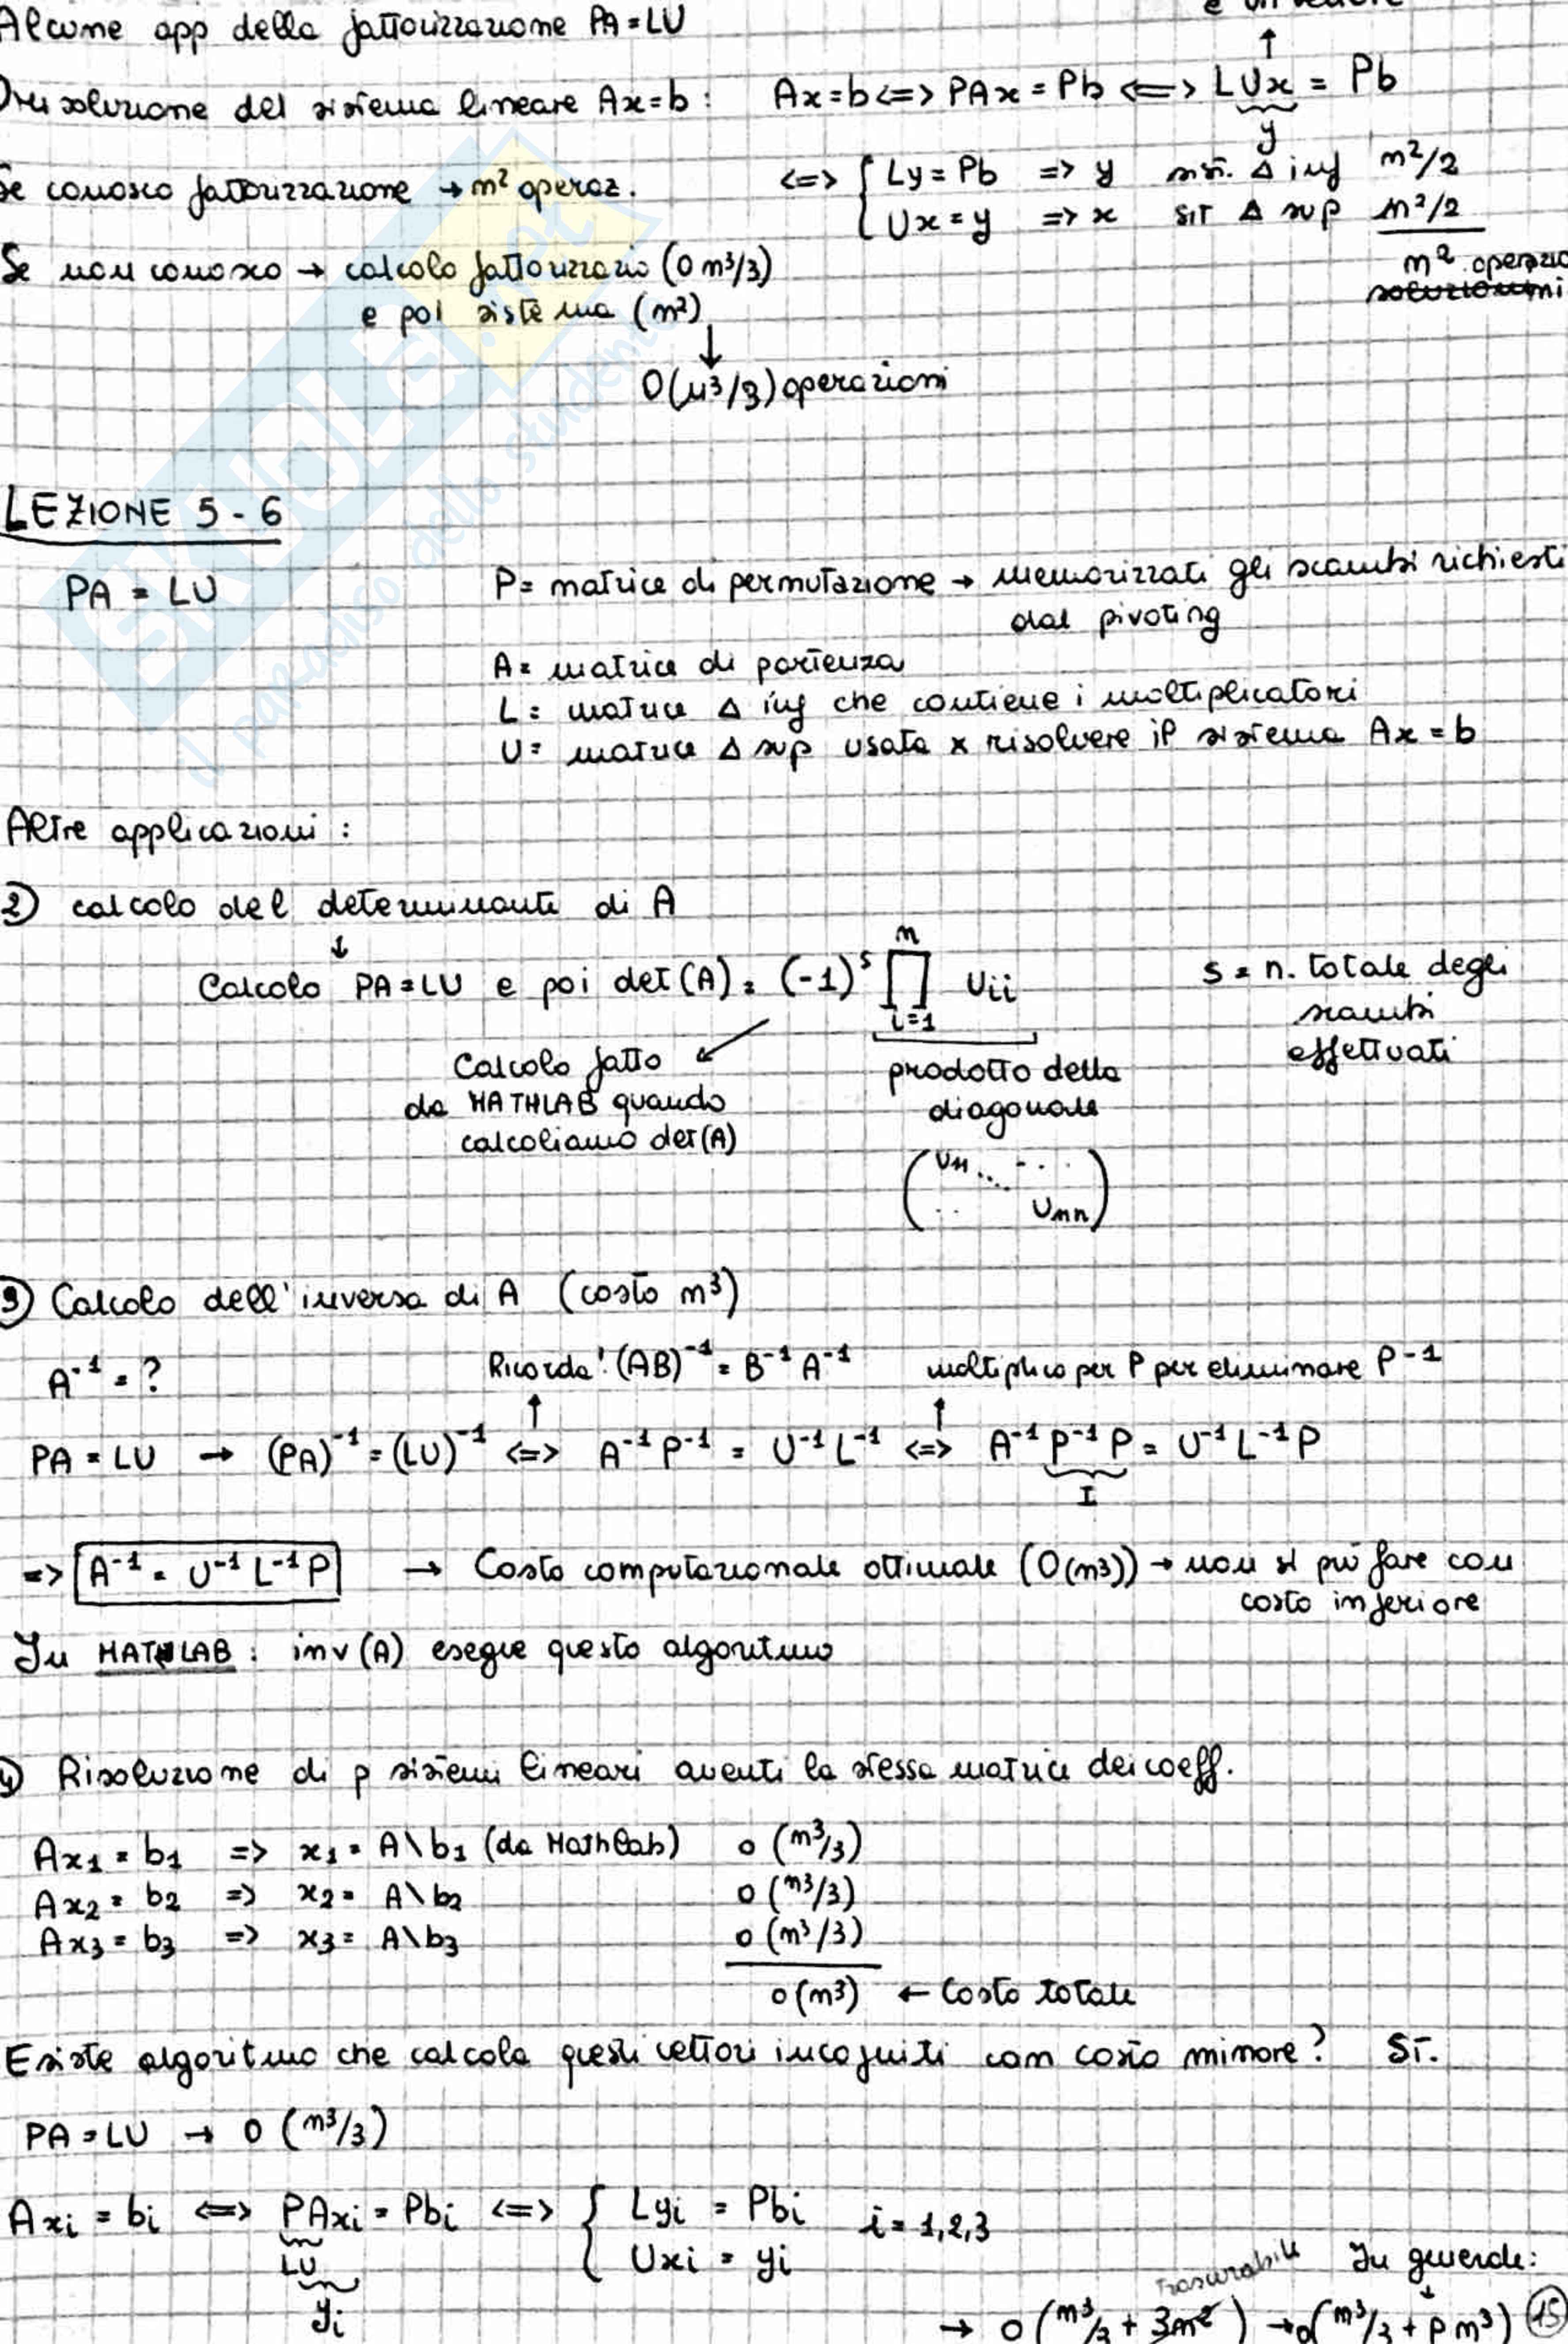 Alcune app della fattorizzazione PA = LU
è un vettore
↑
Risoluzione del sistema lineare Ax=b : Ax=b <=> PAx = Pb <=> LUx = Pb
y
Se conosco fattorizzazione → n² operaz. <=> { Ly = Pb => y sist. Δ inf n²/2
Ux = y => x sist Δ sup n²/2
n² operazio
soluzioni
Se non conosco → calcolo fattorizzazio (O n³/3)
e poi sistema (n²)
↓
O(n³/3) operazioni
LEZIONE 5 - 6
PA = LU P= matrice di permutazione → memorizzati gli scambi richiesti
dal pivoting
A= matrice di partenza
L= matrice Δ inf che contiene i moltiplicatori
U= matrice Δ sup usata x risolvere il sistema Ax = b
Altre applicazioni :
2) calcolo del determinante di A
↓
Calcolo PA=LU e poi det(A) = (-1)^s ∏_{i=1}^{n} Uii s = n. totale degli
scambi
effettuati
Calcolo fatto
da MATHLAB quando
calcoliamo det(A)
prodotto della
diagonale
(U11 ... - ...
... Unn)
3) Calcolo dell'inversa di A (costo n³)
A⁻¹ = ? Ricorda! (AB)⁻¹ = B⁻¹ A⁻¹ moltiplico per P per eliminare P-1
↑ ↑
PA = LU → (PA)⁻¹ = (LU)⁻¹ <=> A⁻¹ P⁻¹ = U⁻¹ L⁻¹ <=> A⁻¹ P⁻¹ P = U⁻¹ L⁻¹ P
I
=> A⁻¹ = U⁻¹ L⁻¹ P → Costo computazionale ottimale (O(n³)) → non si può fare con
costo inferiore
In MATHLAB : inv(A) esegue questo algoritmo
4) Risoluzione di p sistemi lineari aventi la stessa matrice dei coeff.
Ax1 = b1 => x1 = A\b1 (da Mathlab) O (n³/3)
Ax2 = b2 => x2 = A\b2 O (n³/3)
Ax3 = b3 => x3 = A\b3 O (n³/3)
O(n³) ← Costo totale
Esiste algoritmo che calcola questi vettori incogniti con costo minore? Sì.
PA = LU → O (n³/3)
Axi = bi <=> PAxi = Pbi <=> { Lyi = Pbi i = 1,2,3
LU Uxi = yi
yi
trascurabile In generale:
↓
→ O (n³/3 + 3n²) → O(n³/3 + p n³) 15
SKUOLA.net
il paradiso dello studente